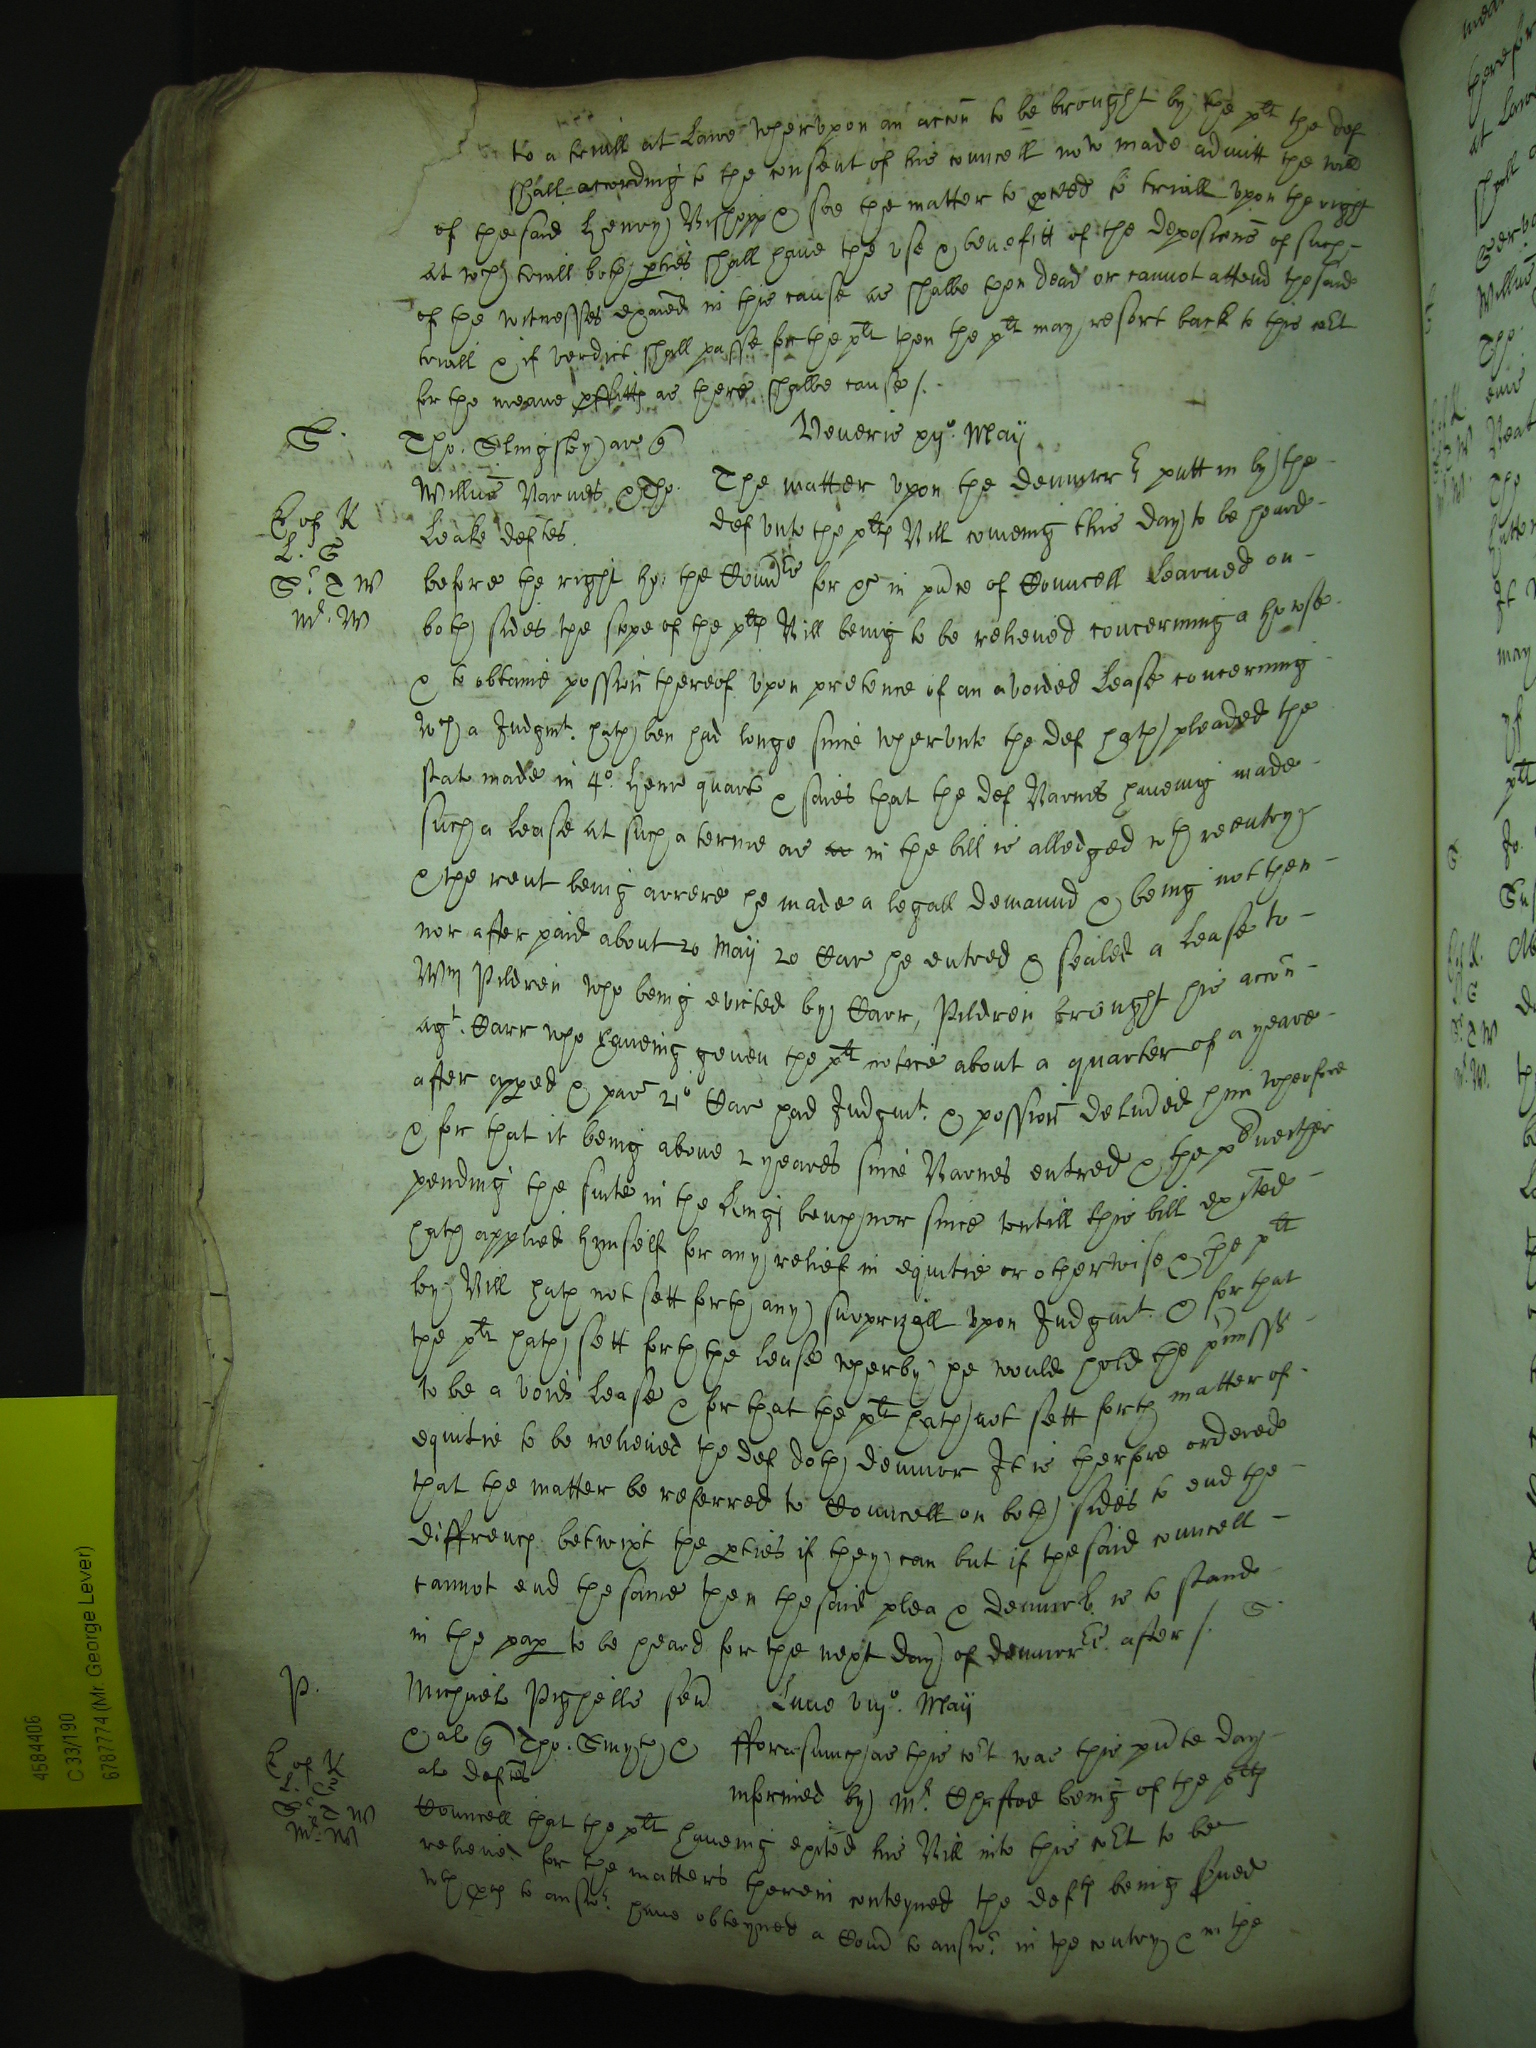 to a triall at Lawe wherupon an accon to be brought by the plt the def
shall according to the consent of his councell now made admitt the will
of the said Henry Bishopp & soe the matter to pceed to triall upon the right
At wch triall both pties shall have the use & benefitt of the deposicons of such
of the witnesses exaied in this cause as shalbe then dead or cannot attend the said
triall & if verdict shall passe for the plt then the plt may resort back to this cort
for the meane pffitts as there shalbe cause /.
S.
Veneris xij°. Maij
Tho. Slingsby ar q
Willm Barnes & Tho.
Leake deftes.
The matter upon the demurrr putt in by the
def unto the plts Bill comeing this day to be heard
E of K
L. S
Sr. T W
Mr. W
before the right ho: the Comrs for &c in pnce of Councell Learned on
both sides the scope of the plts Bill being to be releived concerning a howse
& to obtaine possion thereof upon pretence of an avoided Lease concerning
wch a Judgmt. hath ben had longe since wherunto the def hath pleaded the
stat made in 4°. Henr quart & saies that the def Barnes haveing made
such a Lease at such a terme as in the bill is alledged wth reentry
& the rent being arrere he made a legall demaund & being not then
nor after paid about 20 May 20 Car he entred & sealed a Lease to
Wm Pildren who being evicted by Carr, Pildren brought his accon
agt. Carr who haveing geven the plt notice about a quarter of a yeare
after apped & pas 21° Car had Judgmt. & possion delivered him wherfore
& for that it being above 2 yeares since Barnes entred & the plt neither
pending the suite in the Kings bench nor since untill this bill exited
hath applied himself for any relief in equitie or otherwise & the plt
by Bill hath not sett forth any surprizall upon Judgmt. & for that
the plt hath sett forth the Lease wherby he would hold the pmisss
to be a void Lease & for that the plt hath not sett forth matter of
equitie to be releived the def doth demurr It is therfore ordered
that the matter be referred to Councell on both sides to end the
diffrence betwixt the pties if they can but if the said councell
cannot end the same then the said plea & demurrr is to stand
in the pap to be heard for the next day of demurrrs after /. S.
P.
Michaels Pighells sen
& al q Tho: Smyth &
als deftes
Lune viij°. Maij
E of K
L. Gr
Sr T W
Mr. W
fforasmuch as this cort was this pnte day
informed by Mr. Chestoe being of the plts
Councell that the plt haveing exited his Bill into this cort to be
releived for the matters therein conteyned the defts being sued
wth pces to answr. have obteyned a Com to answr. in the contry & in the
4584406
C 33/190
6787774 (Mr. George Lever)